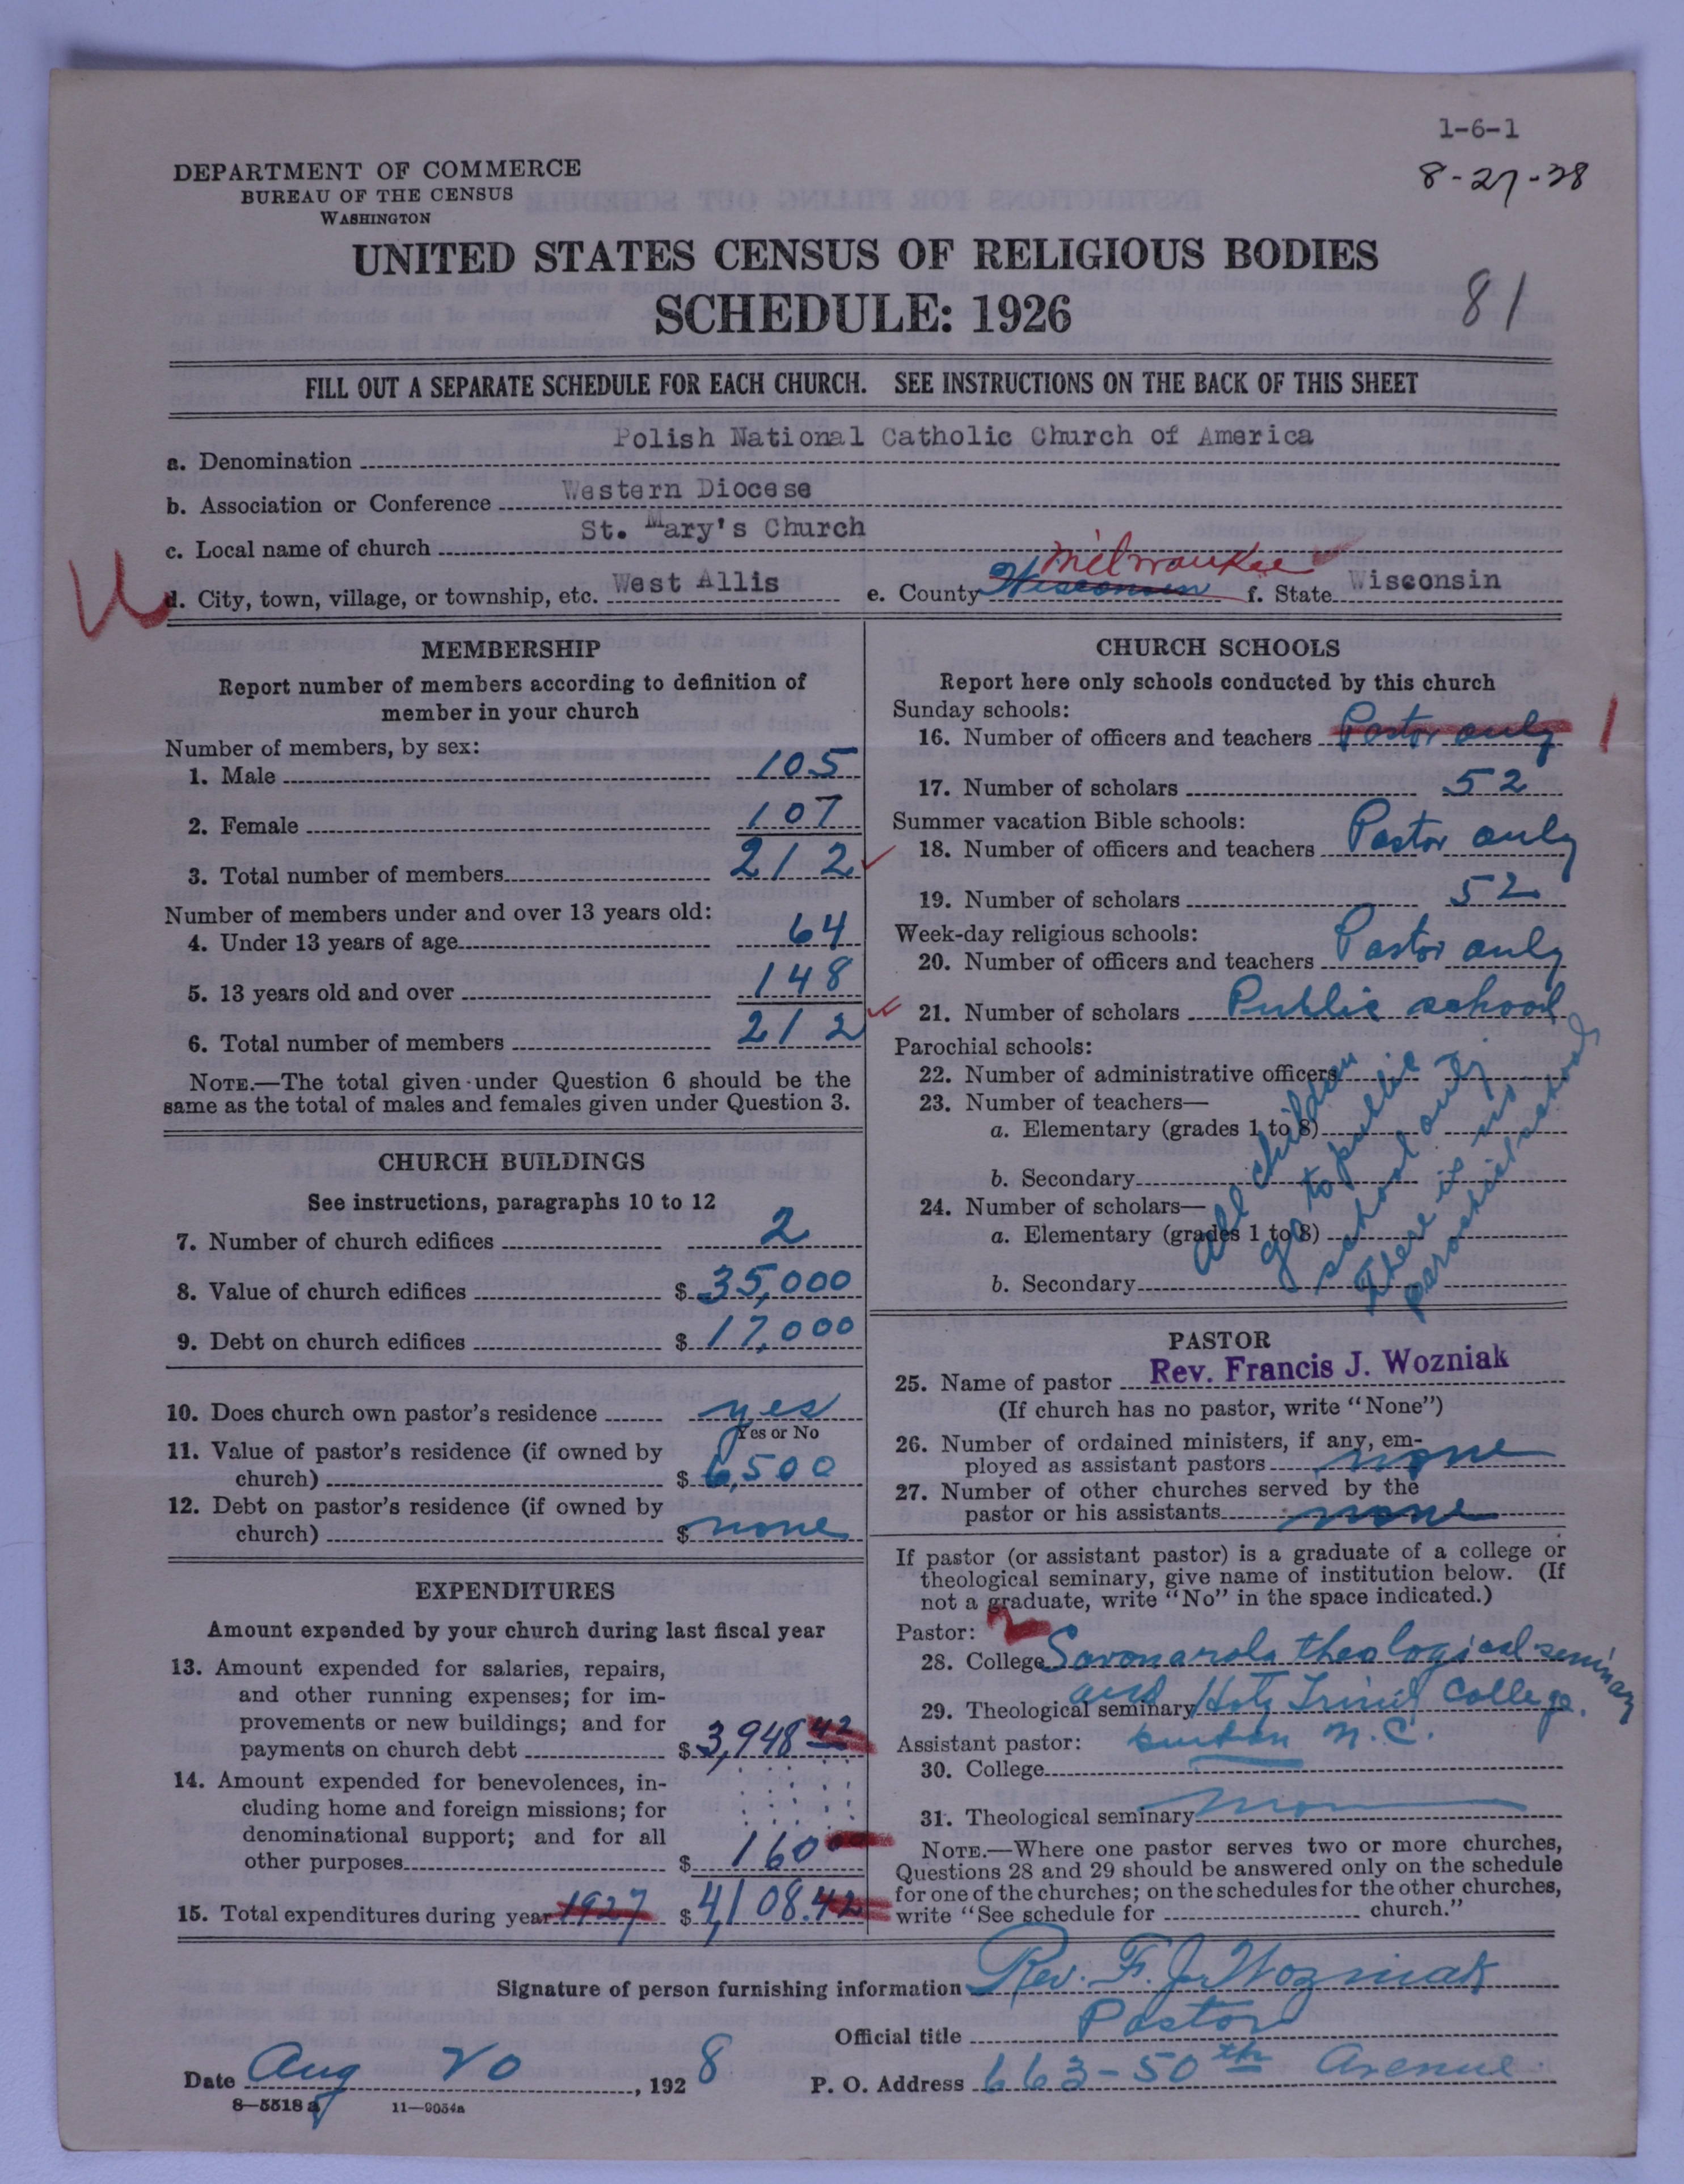 1-6-1
8-27-28
DEPARTMENT OF COMMERCE
BUREAU OF THE CENSUS
WASHINGTON
UNITED STATES CENSUS OF RELIGIOUS BODIES
SCHEDULE: 1926
81
FILL OUT A SEPARATE SCHEDULE FOR EACH CHURCH. SEE INSTRUCTIONS ON THE BACK OF THIS SHEET
a. Denomination Polish National Catholic Church of America
b. Association or Conference Western Diocese
c. Local name of church St. Mary's Church
d. City, town, village, or township, etc. West Allis e. County Wisconsin Milwaukee f. State Wisconsin
MEMBERSHIP
Report number of members according to definition of
member in your church
Number of members, by sex:
1. Male 105
2. Female 107
3. Total number of members 212
Number of members under and over 13 years old:
4. Under 13 years of age 64
5. 13 years old and over 148
6. Total number of members 212
NOTE.—The total given under Question 6 should be the
same as the total of males and females given under Question 3.
CHURCH BUILDINGS
See instructions, paragraphs 10 to 12
7. Number of church edifices 2
8. Value of church edifices $ 35,000
9. Debt on church edifices $ 17,000
10. Does church own pastor's residence yes
Yes or No
11. Value of pastor's residence (if owned by
church) $ 6,500
12. Debt on pastor's residence (if owned by
church) $ none
EXPENDITURES
Amount expended by your church during last fiscal year
13. Amount expended for salaries, repairs,
and other running expenses; for im-
provements or new buildings; and for
payments on church debt $ 3,948 42
14. Amount expended for benevolences, in-
cluding home and foreign missions; for
denominational support; and for all
other purposes $ 160
15. Total expenditures during year 1927 $ 4,108.42
CHURCH SCHOOLS
Report here only schools conducted by this church
Sunday schools:
16. Number of officers and teachers Pastor only 1
17. Number of scholars 52
Summer vacation Bible schools:
18. Number of officers and teachers Pastor only
19. Number of scholars 52
Week-day religious schools:
20. Number of officers and teachers Pastor only
21. Number of scholars Public school
Parochial schools:
22. Number of administrative officers
23. Number of teachers—
a. Elementary (grades 1 to 8)
b. Secondary
24. Number of scholars—
a. Elementary (grades 1 to 8)
b. Secondary
All children
go to public
school only
There is no
parochial school
PASTOR
25. Name of pastor Rev. Francis J. Wozniak
(If church has no pastor, write "None")
26. Number of ordained ministers, if any, em-
ployed as assistant pastors none
27. Number of other churches served by the
pastor or his assistants none
If pastor (or assistant pastor) is a graduate of a college or
theological seminary, give name of institution below. (If
not a graduate, write "No" in the space indicated.)
Pastor:
28. College Savonarola theological seminary
29. Theological seminary and Holy Trinity College.
Assistant pastor: N. C.
30. College
31. Theological seminary
NOTE.—Where one pastor serves two or more churches,
Questions 28 and 29 should be answered only on the schedule
for one of the churches; on the schedules for the other churches,
write "See schedule for church."
Signature of person furnishing information Rev. F. J. Wozniak
Official title Pastor
Date Aug 20, 1928 P. O. Address 663-50th Avenue
8—5518 a 11—9054a